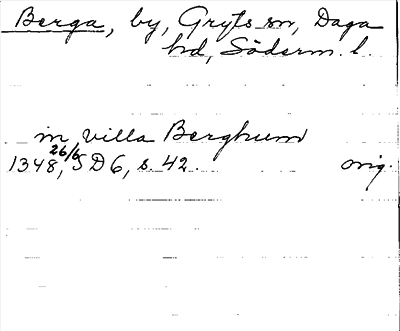 Berga, by, Gryts sn, Daga
hd, Söderm. l.
in villa Berghum
26/6
1348, SD 6, s. 42. orig.